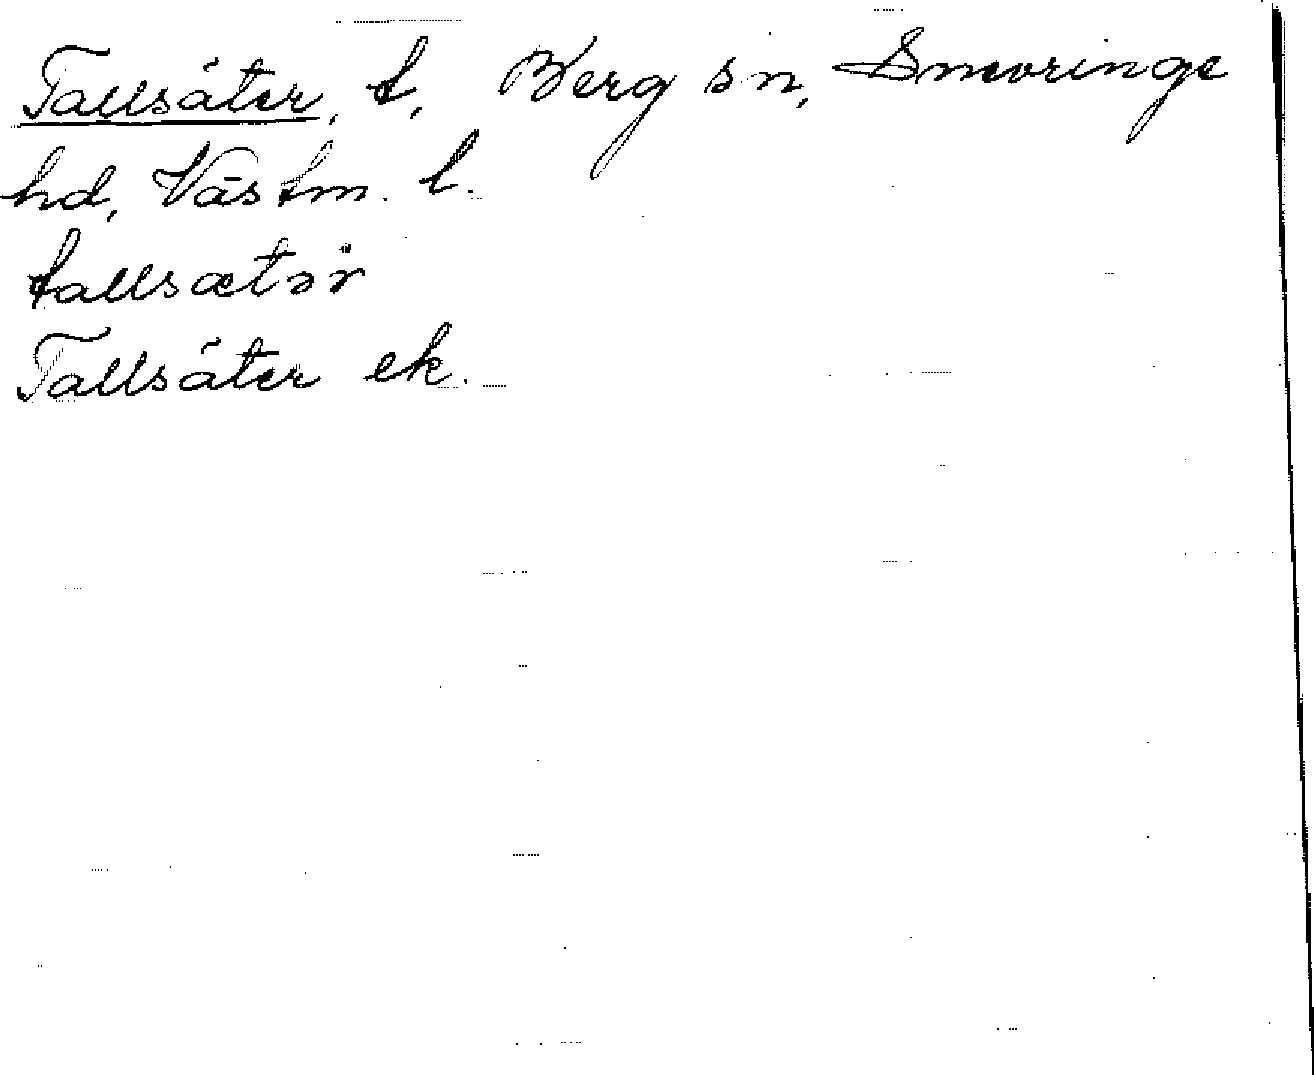 Tallsäter, t, Berg sn, Snevringe
hd, Västm. l.
tallsætər
Tallsäter ek.